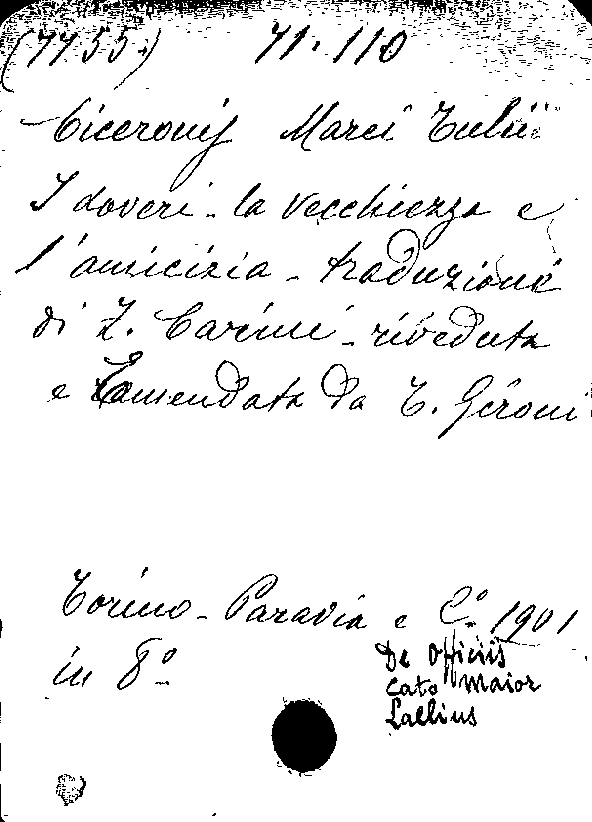 (7755.) 71.110
Ciceronis Marci Tulii
I doveri - la vecchiezza e
l'amicizia - traduzione
di Z. Carini - riveduta
e emendata da C. Gironi
Torino - Paravia e C.º 1901
in 8º
De Officiis
Cato Maior
Laelius